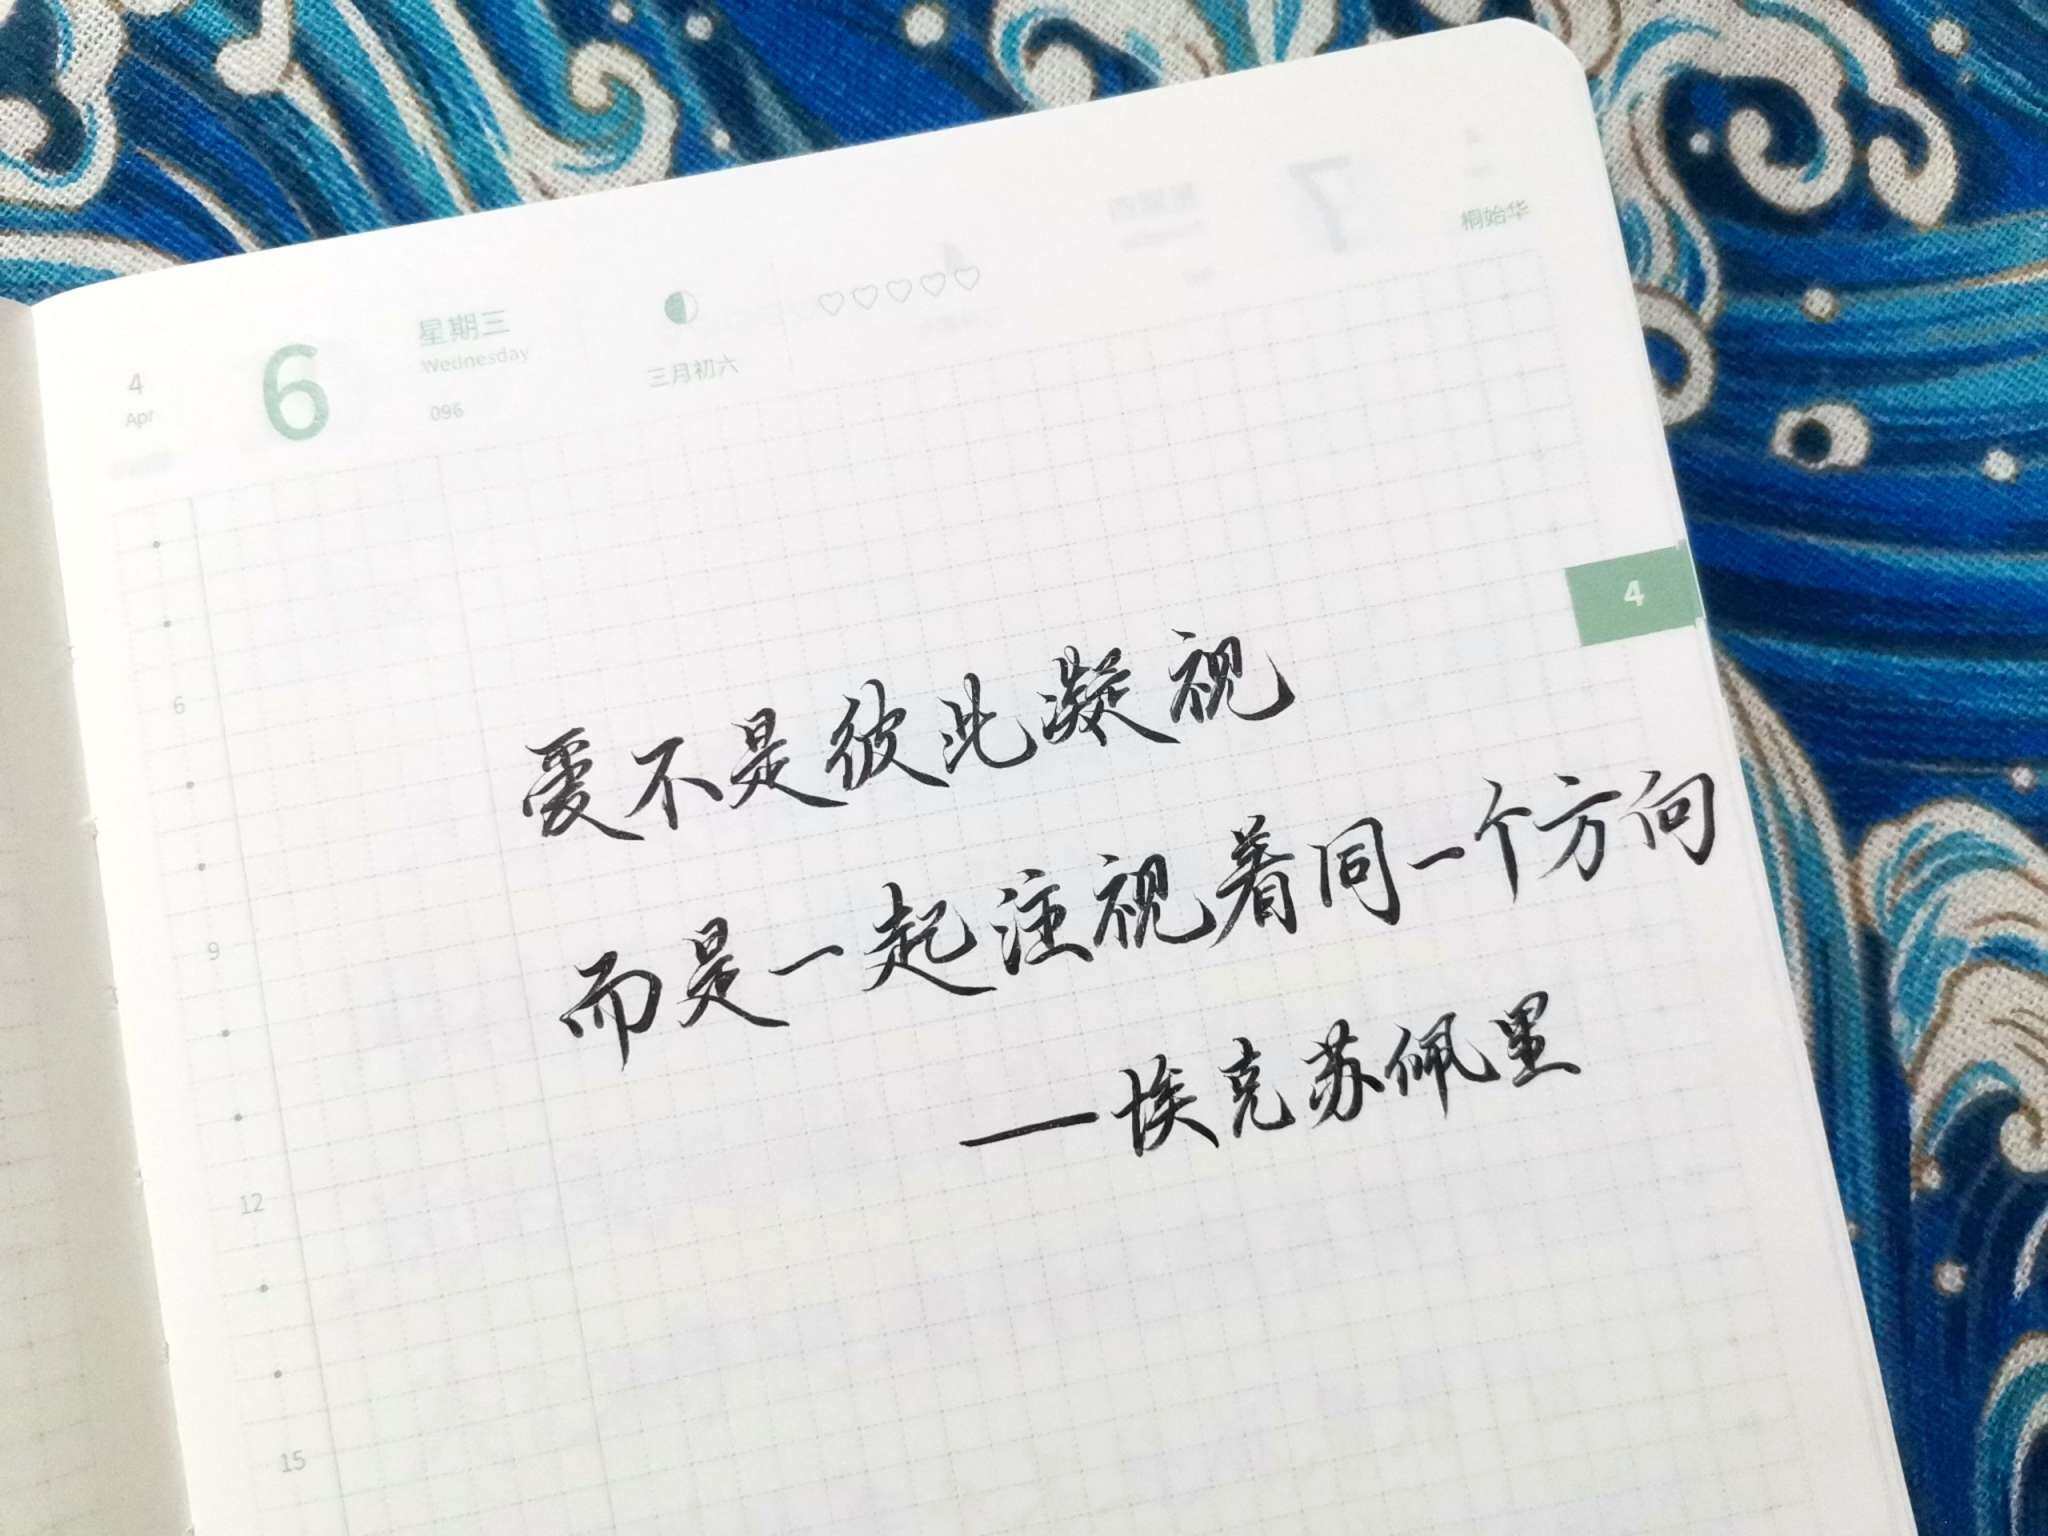 4
Apr
6
星期三
Wednesday
096
三月初六
桐始华
4
6
9
12
15
爱不是彼此凝视
而是一起注视着同一个方向
——埃克苏佩里